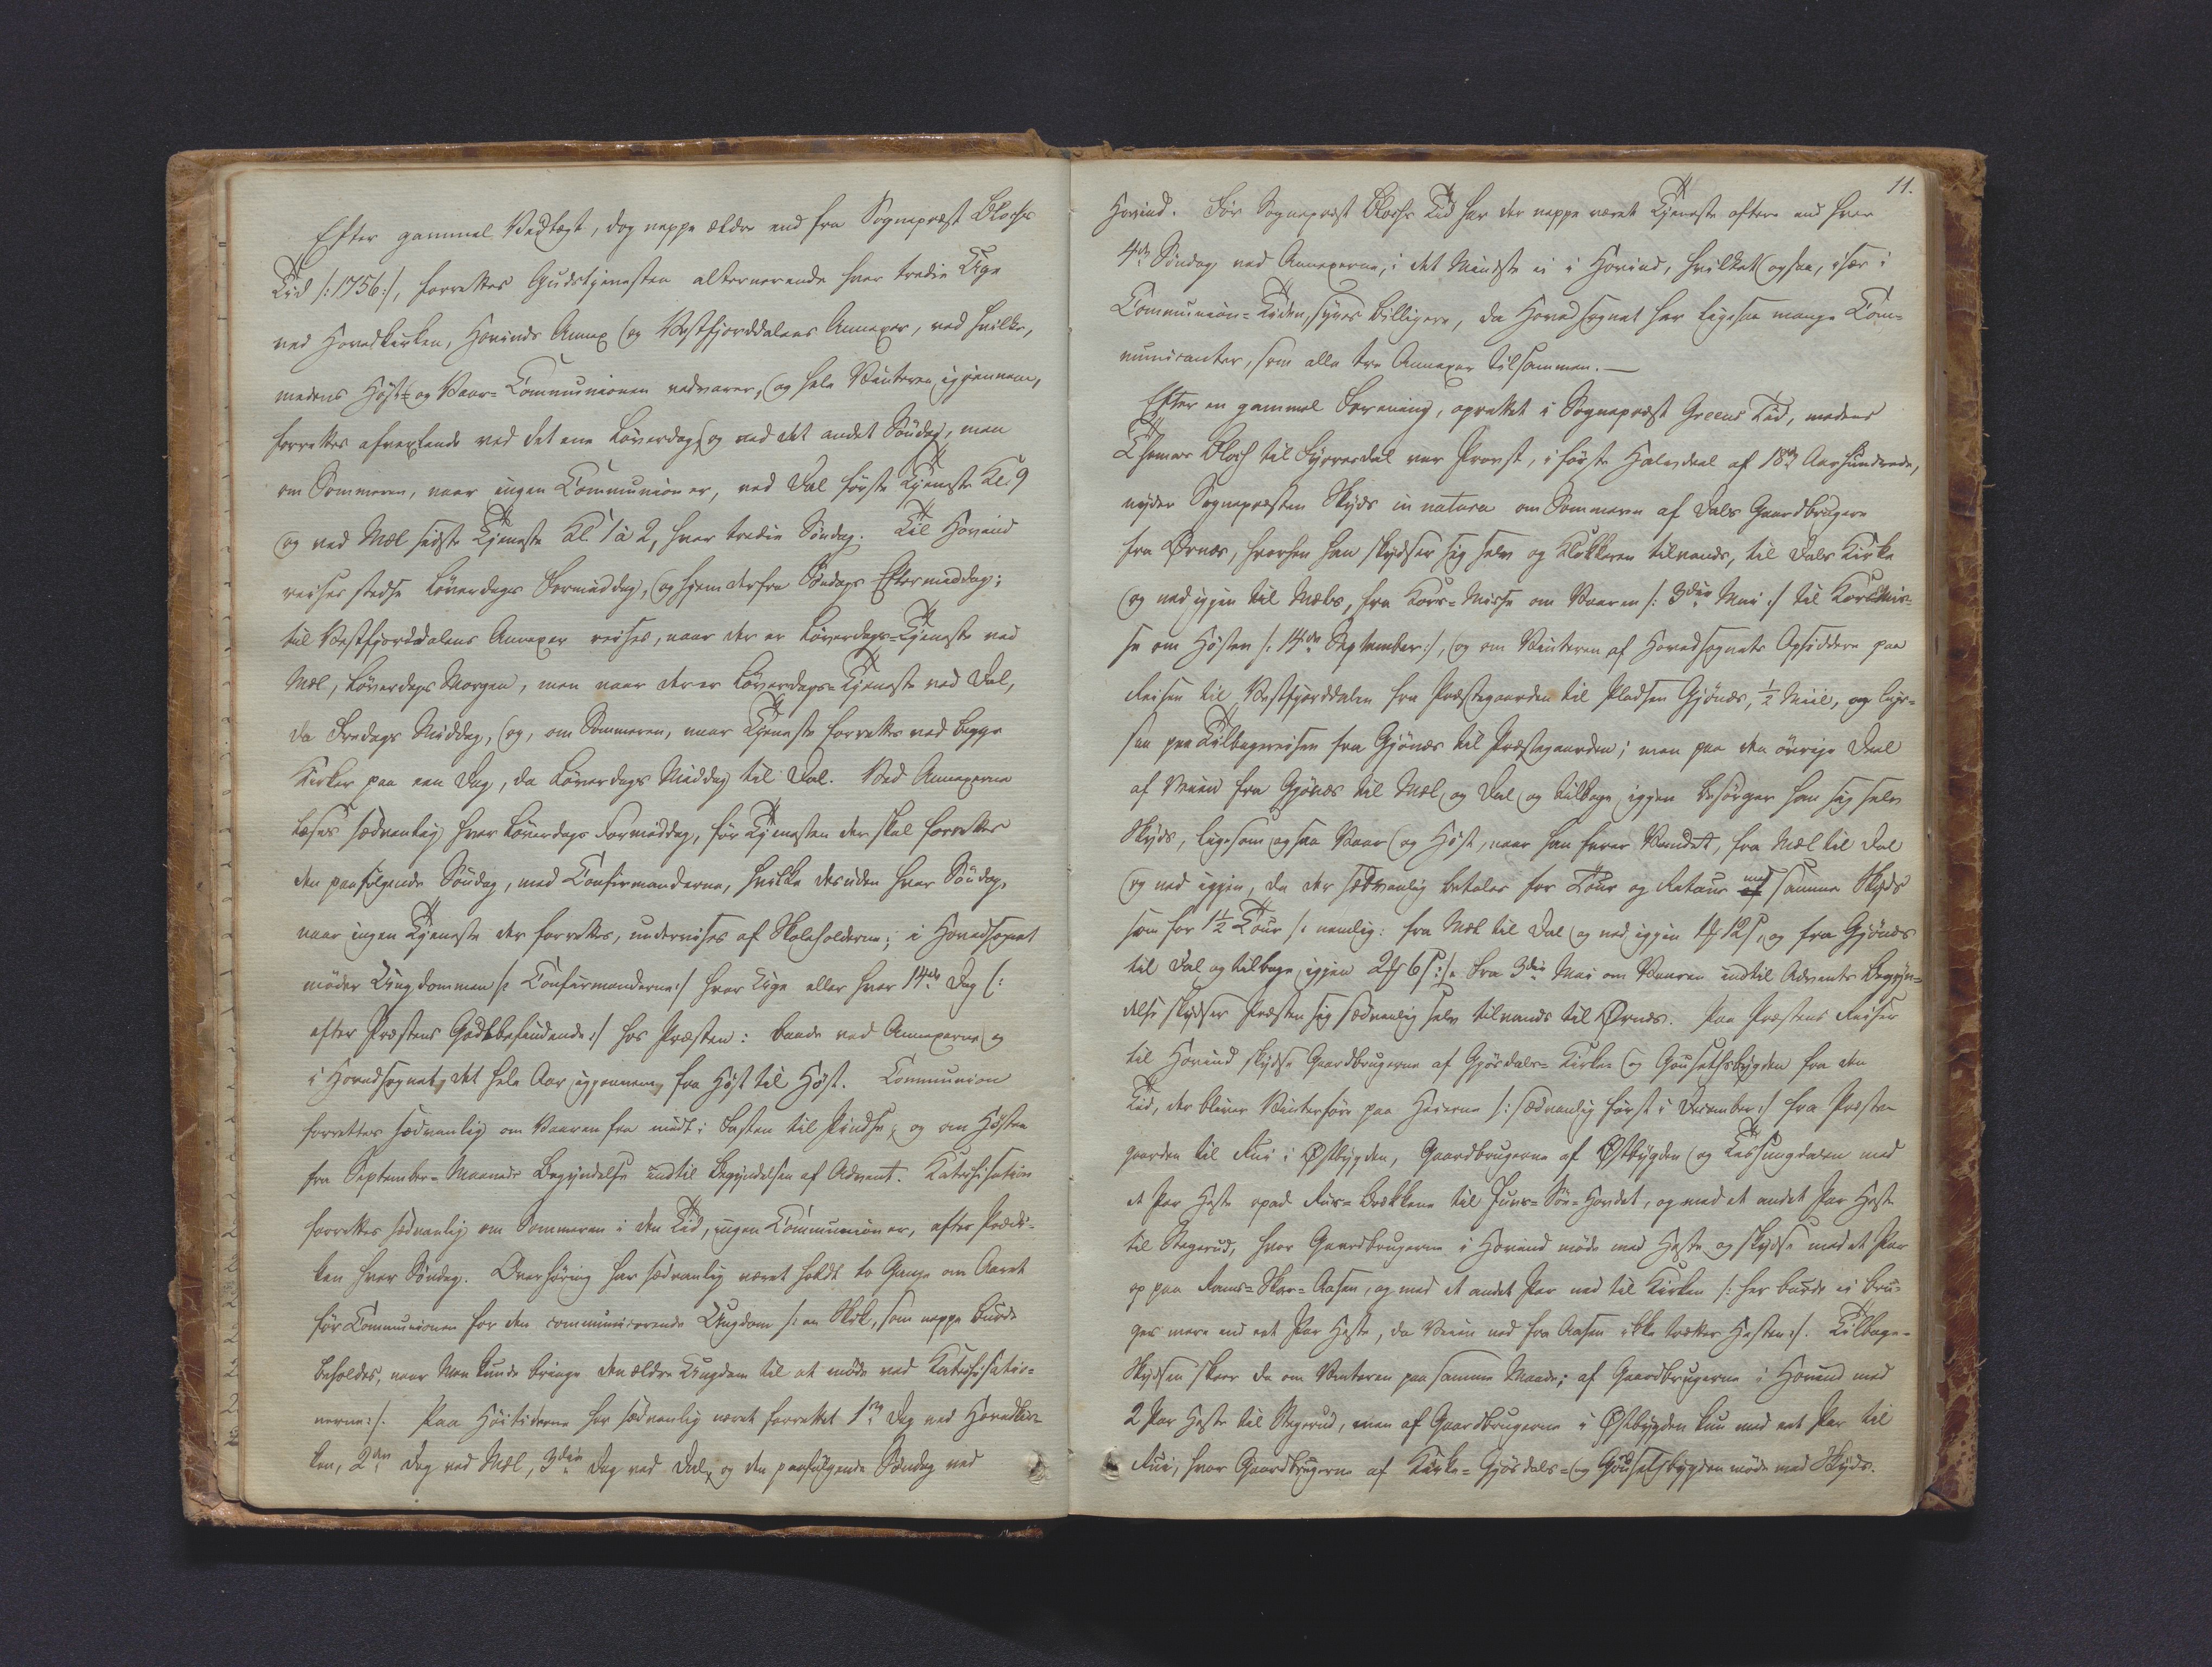 Efter gammel Vedtægt, dog neppe ældre end fra Sognepræst Blochs
Tid /: 1756:/, forrettes Gudstjenesten alternerende hver tredie Uge
ved Hovedkirken, Hovinds Annex og Vestfjorddalens Annexer, ved hvilke,
medens Høst- og Vaar-Communionen vedvarer, og hele Vinteren igjennem,
forrettes afvexlende ved det ene Løverdag, og ved det andet Søndag, men
om Sommeren, naar ingen Communion er, ved Dal første Tjeneste Kl. 9
og ved Mæl sidste Tjeneste Kl 1 à 2, hver tredie Søndag. Til Hovind
reises stedse Løverdags Formiddag, og hjem derfra Søndags Eftermiddag;
til Vestfjorddalens Annexer reises, naar der er Løverdags-Tjeneste ved
Mæl, Løverdags Morgen, men naar der er Løverdags-Tjeneste ved Dal,
da Fredags Middag, og, om Sommeren, naar Tjeneste forrettes ved begge
Kirker paa een Dag, da Løverdags Middag til Dal. Ved Annexerne
læses sædvanlig hver Løverdags Formiddag, før Tjenesten der skal forrettes
den paafølgende Søndag, med Confirmanderne, hvilke desuden hver Søndag,
naar ingen Tjeneste der forrettes, undervises af Skoleholderne; i Hovedsognet
møder Ungdommen /: Confirmanderne:/ hver Uge eller hver 14de Dag (:
efter Præstens Godtbefindende:/ hos Præsten: baade ved Annexerne og
i Hovedsognet, det hele Aar igjennem, fra Høst til Høst. Communion
forrettes sædvanlig om Vaaren fra midt i Fasten til Pindse, og om Høsten
fra September-Maaneds Begyndelse indtil Begyndelsen af Advent. Katechisation
forrettes sædvanlig om Sommeren i den Tid, ingen Communion er, efter Prædi-
ken hver Søndag. Overhøring har sædvanlig været holdt to Gange om Aaret
før Communionen for den communicerende Ungdom /: en Skik, som neppe burde
beholdes, naar Man kunde bringe den ældre Ungdom til at møde ved Katechisatio-
nerne:/. Paa Høitiderne har sædvanlig været forrettet 1ste Dag ved Hovedkir-
ken, 2den Dag ved Mæl, 3die Dag ved Dal, og den paafølgende Søndag ved
11.
Hovind. Før Sognepræst Blochs Tid har der neppe været Tjeneste oftere end hver
4de Søndag ved Annexerne, i det Mindste ei i Hovind, hvilket ogsaa, især i
Communion-Tiden, synes billigere, da Hovedsognet har ligesaa mange Com-
municanter, som alle tre Annexer tilsammen. —
Efter en gammel Forening, oprettet i Sognepræst Greens Tid, medens
Thomas Bloch til Fyrresdal var Provst, i første Halvdeel af 18de Aarhundrede,
nyder Sognepræsten Skyds in natura om Sommeren af Dals Gaardbrugere
fra Ørnæs, hvorhen han skydser sig selv og Klokkeren tilvands, til Dals Kirke
og ned igjen til Mæls, fra Kors-Misse om Vaaren /: 3die Mai :/ til Kors Mis-
se om Høsten /: 14de September:/, og om Vinteren af Hovedsognets Opsiddere paa
Reisen til Vestfjorddalen fra Præstegaarden til Pladsen Gjønæs, ½ Miil, og lige-
saa paa Tilbagereisen fra Gjønæs til Præstegaarden; men paa den øvrige Deel
af Veien fra Gjønæs til Mæl og Dal og tilbage igjen besørger han sig selv
Skyds, ligesom ogsaa Vaar og Høst, naar han farer Vandet, fra Mæl til Dal
og ned igjen, da der sædvanlig betales for Tour og Retour med samme Skyds
som for 1½ Tour /: nemlig: fra Mæl til Dal og ned igjen 1 12 s, og fra Gjønæs
til Dal og tilbage igjen 2 6 s:/. Fra 3die Mai om Vaaren indtil Advents Begyn-
delse skydser Præsten sig sædvanlig selv tilvands til Ørnæs. Paa Præstens Reiser
til Hovind skydse Gaardbrugerne af Gjøsdals-Kirke- og Gousetsbygden fra den
Tid, der bliver Vinterføre paa Heierne /: sædvanlig først i December:/ fra Præste-
gaarden til Rui i Østbygden, Gaardbrugerne af Østbygden og Tessungdalen med
et Par Heste opad Rus-Bækkene til Juvs-Sør-Hovdet, og med et andet Par Heste
til Stegerud, hvor Gaardbrugerne i Hovind møde med Heste og skydse med et Par
op paa Rams-Skar-Aasen, og med et andet Par ned til Kirken /: her burde ei bru-
ges mere end eet Par Heste, da Veien ned fra Aasen ikke trætter Hesten:/. Tilbage-
Skydsen skeer da om Vinteren paa samme Maade; af Gaardbrugerne i Hovind med
2 Par Heste til Stegerud, men af Gaardbrugerne i Østbygden kun med eet Par til
Rui, hvor Gaardbrugerne af Kirke-Gjøsdals- og Gousetsbygden møde med Skyds.